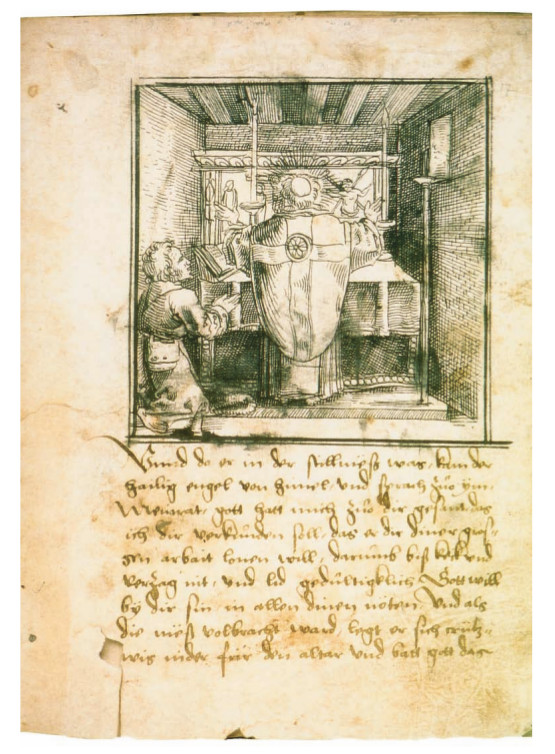 Vnnd do er in der stillmeß was, kam der
hailig engel von himel, vnd sprach zuo ym
Meinrat, gott hatt mich zuo dir gesant das
ich dir verkünden soll, das er dir diner gros-
sen arbait lonen will, darumb biß keck vnd
verzag nit, vnd lid gedultigklich Gott will
by dir sin in allen dinen nöten Vnd als
die meß volbracht ward legt er sich crütz-
wis nider für den altar vnd batt gott das